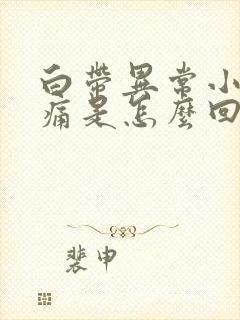 白带异常小
痛是怎麼回
裴申